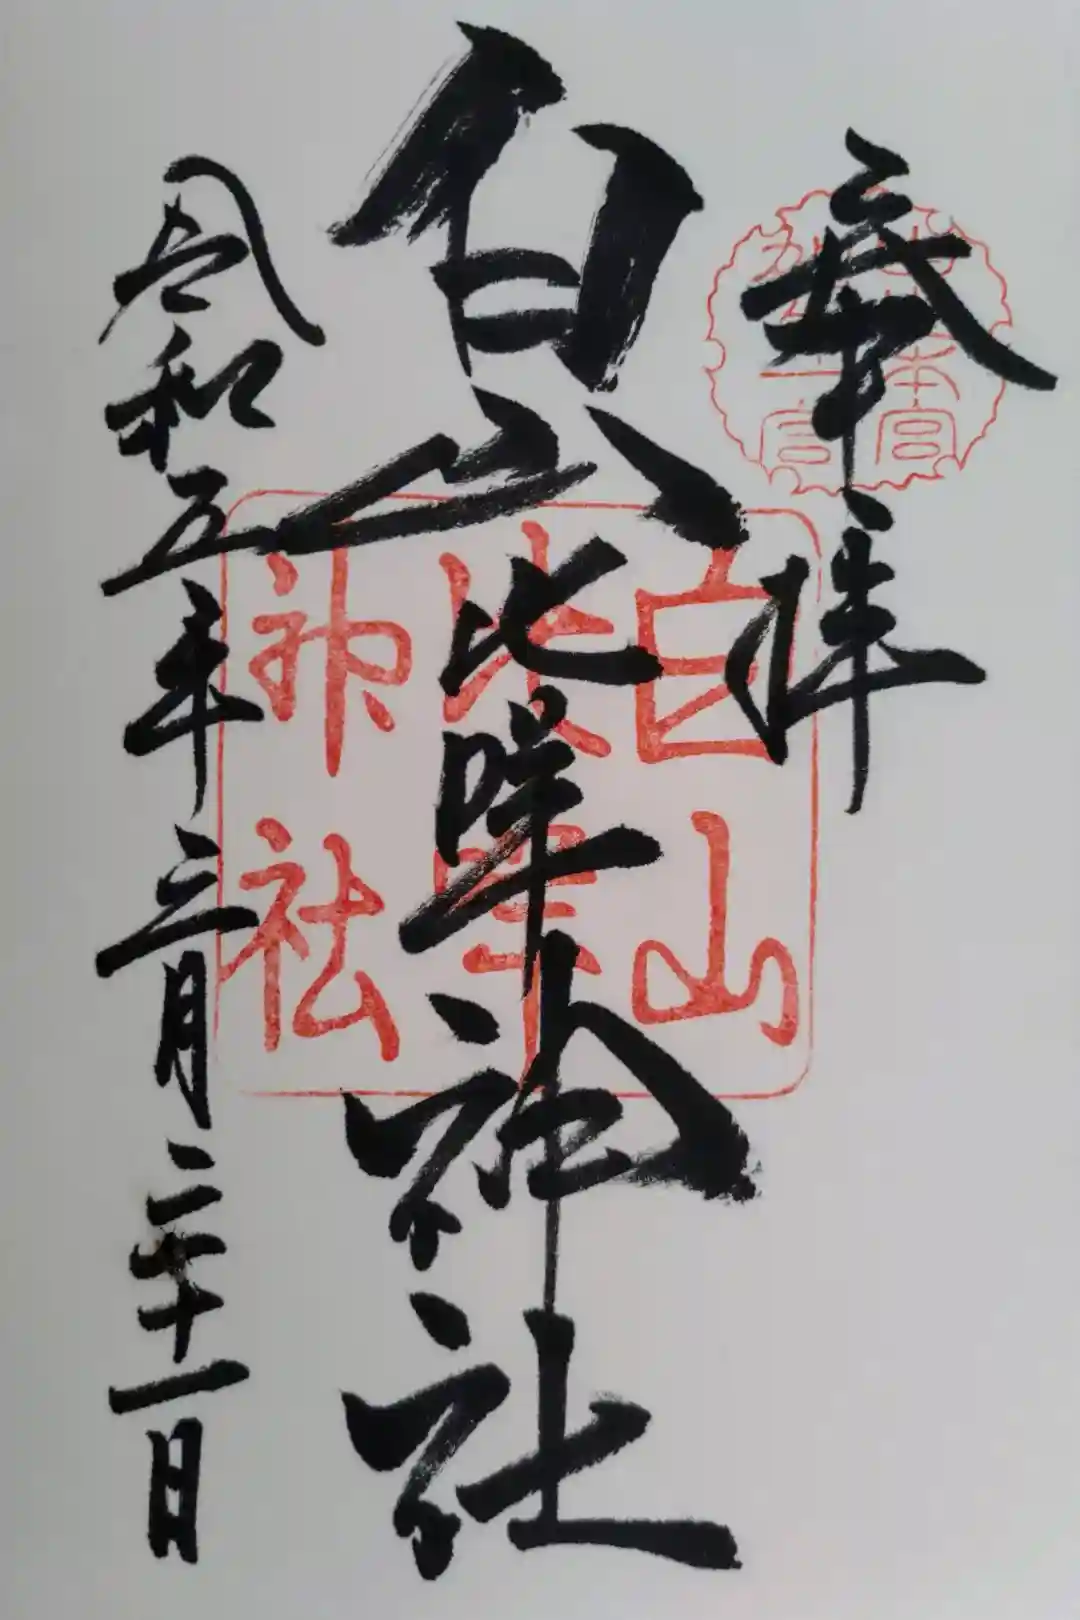 奉拝
白山本宮
加賀一宮
白山比咩神社
白山
比咩
神社
令和五年三月三十一日